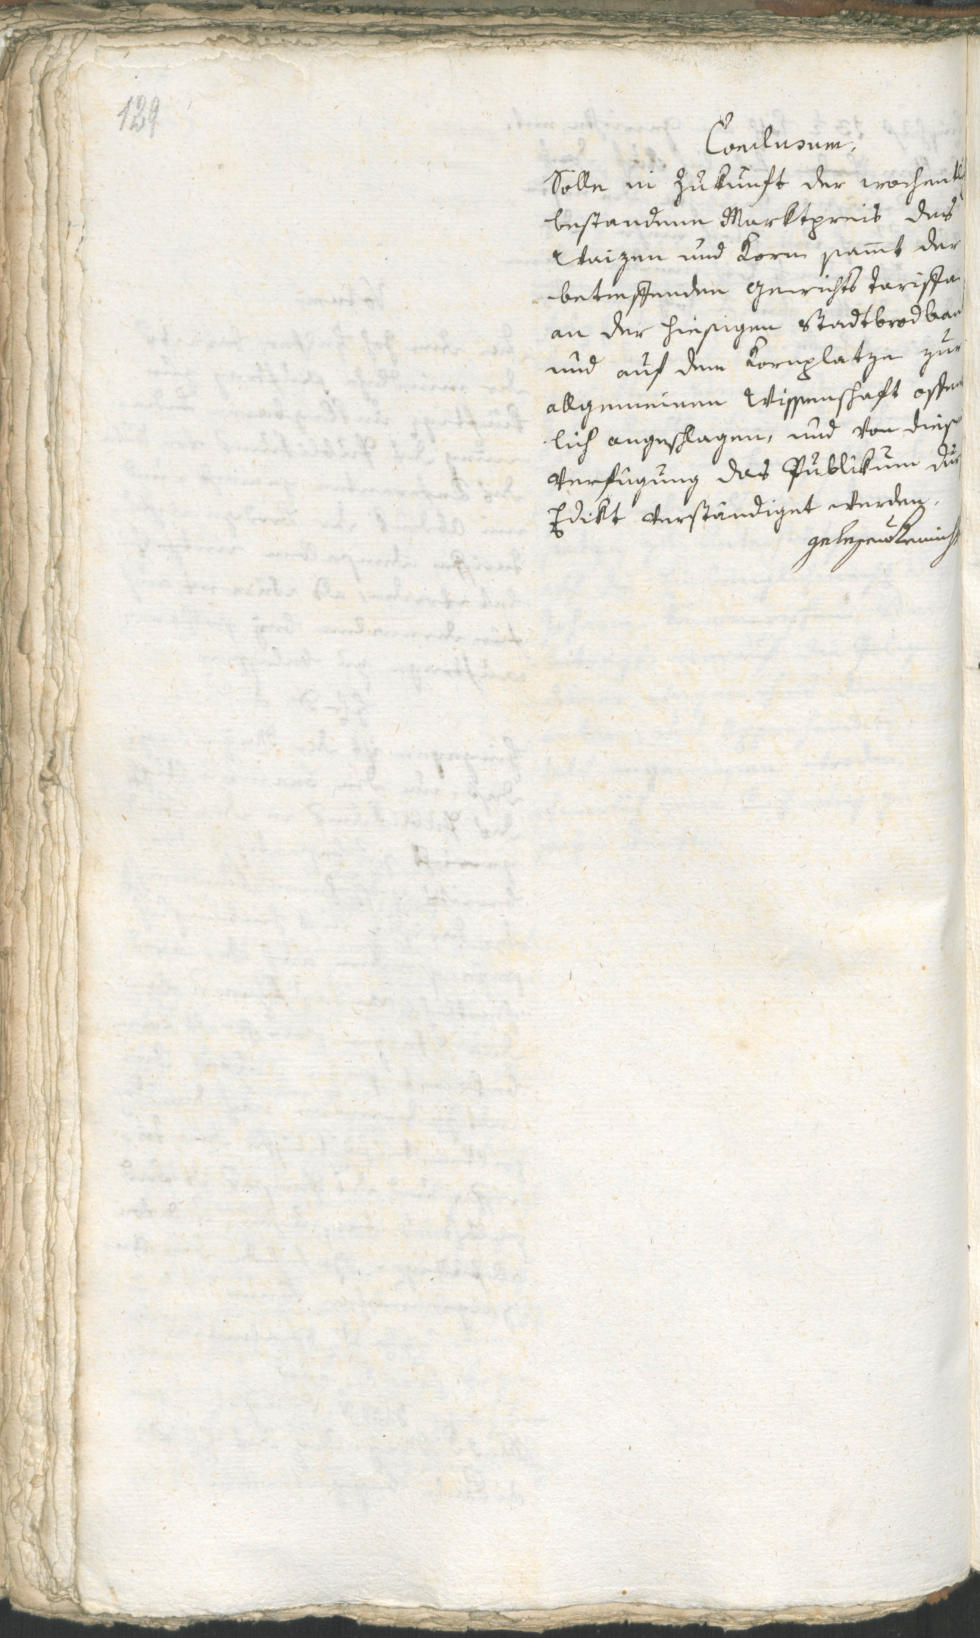 129
Conclusum.
Solle in Zukunft der wochentl
bestandene Marktpreis des
Waizen und Korn sam̅t der
betreffenden Gewichts Tariffa
an der hiesigen Stadtbrodban
und auf dem Kornplatze zur
allgemeinen Wissenschaft offent
lich angeschlagen, und von dieser
Verfügung das Publikum dur
Edikt verständiget werden.